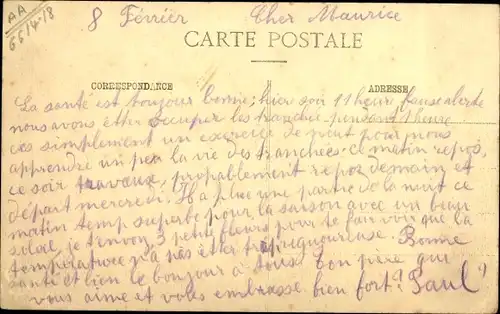 AA
8 Février Cher Maurice
6614-18
CARTE POSTALE
CORRESPONDANCE ADRESSE
La santé est toujour bonne; hier soir 11 heure fause alerte
nous avons étter occuper les tranchée pendant 1 heure
ces simplement un exercice de nuit pour nous
apprendre un peu la vie des tranchées. ce matin repos,
ce soir travaux, probablement repoz demain et
départ mercredi. Il a plue une partie de la nuit ce
matin temp superbe pour la saison avec un beau
soleil, je t'envoi 3 petite fleurs pour te fair voir que la
température n'a pas étter trop rigoureuse. Bonne
santé et bien le bonjour à tous. ton père qui
vous aime et vous embrasse bien fort. Paul